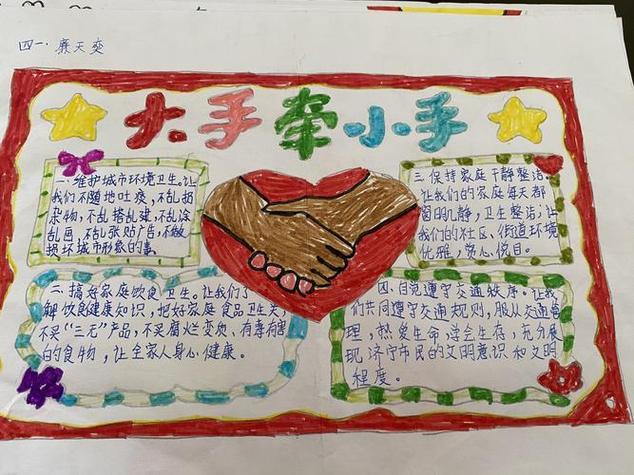 四一. 廉天奕
大手牵小手
一、维护城市环境卫生。让
我们不随地吐痰,不乱扔
杂物,不乱搭乱建,不乱涂
乱画,不乱张贴广告,不做
损坏城市形象的事。
三、保持家庭干净整洁。
让我们的家庭每天都
窗明几净,卫生整洁;让
我们的社区、街道环境
优雅,赏心悦目。
二、搞好家庭饮食卫生。让我们了
解饮食健康知识,把好家庭食品卫生关,
不买“三无”产品,不买腐烂变质、有毒有害
的食物,让全家人身心健康。
四、自觉遵守交通秩序。让我
们共同遵守交通规则,服从交通管
理,热爱生命,学会生存,充分展
现济宁市民的文明意识和文明
程度。